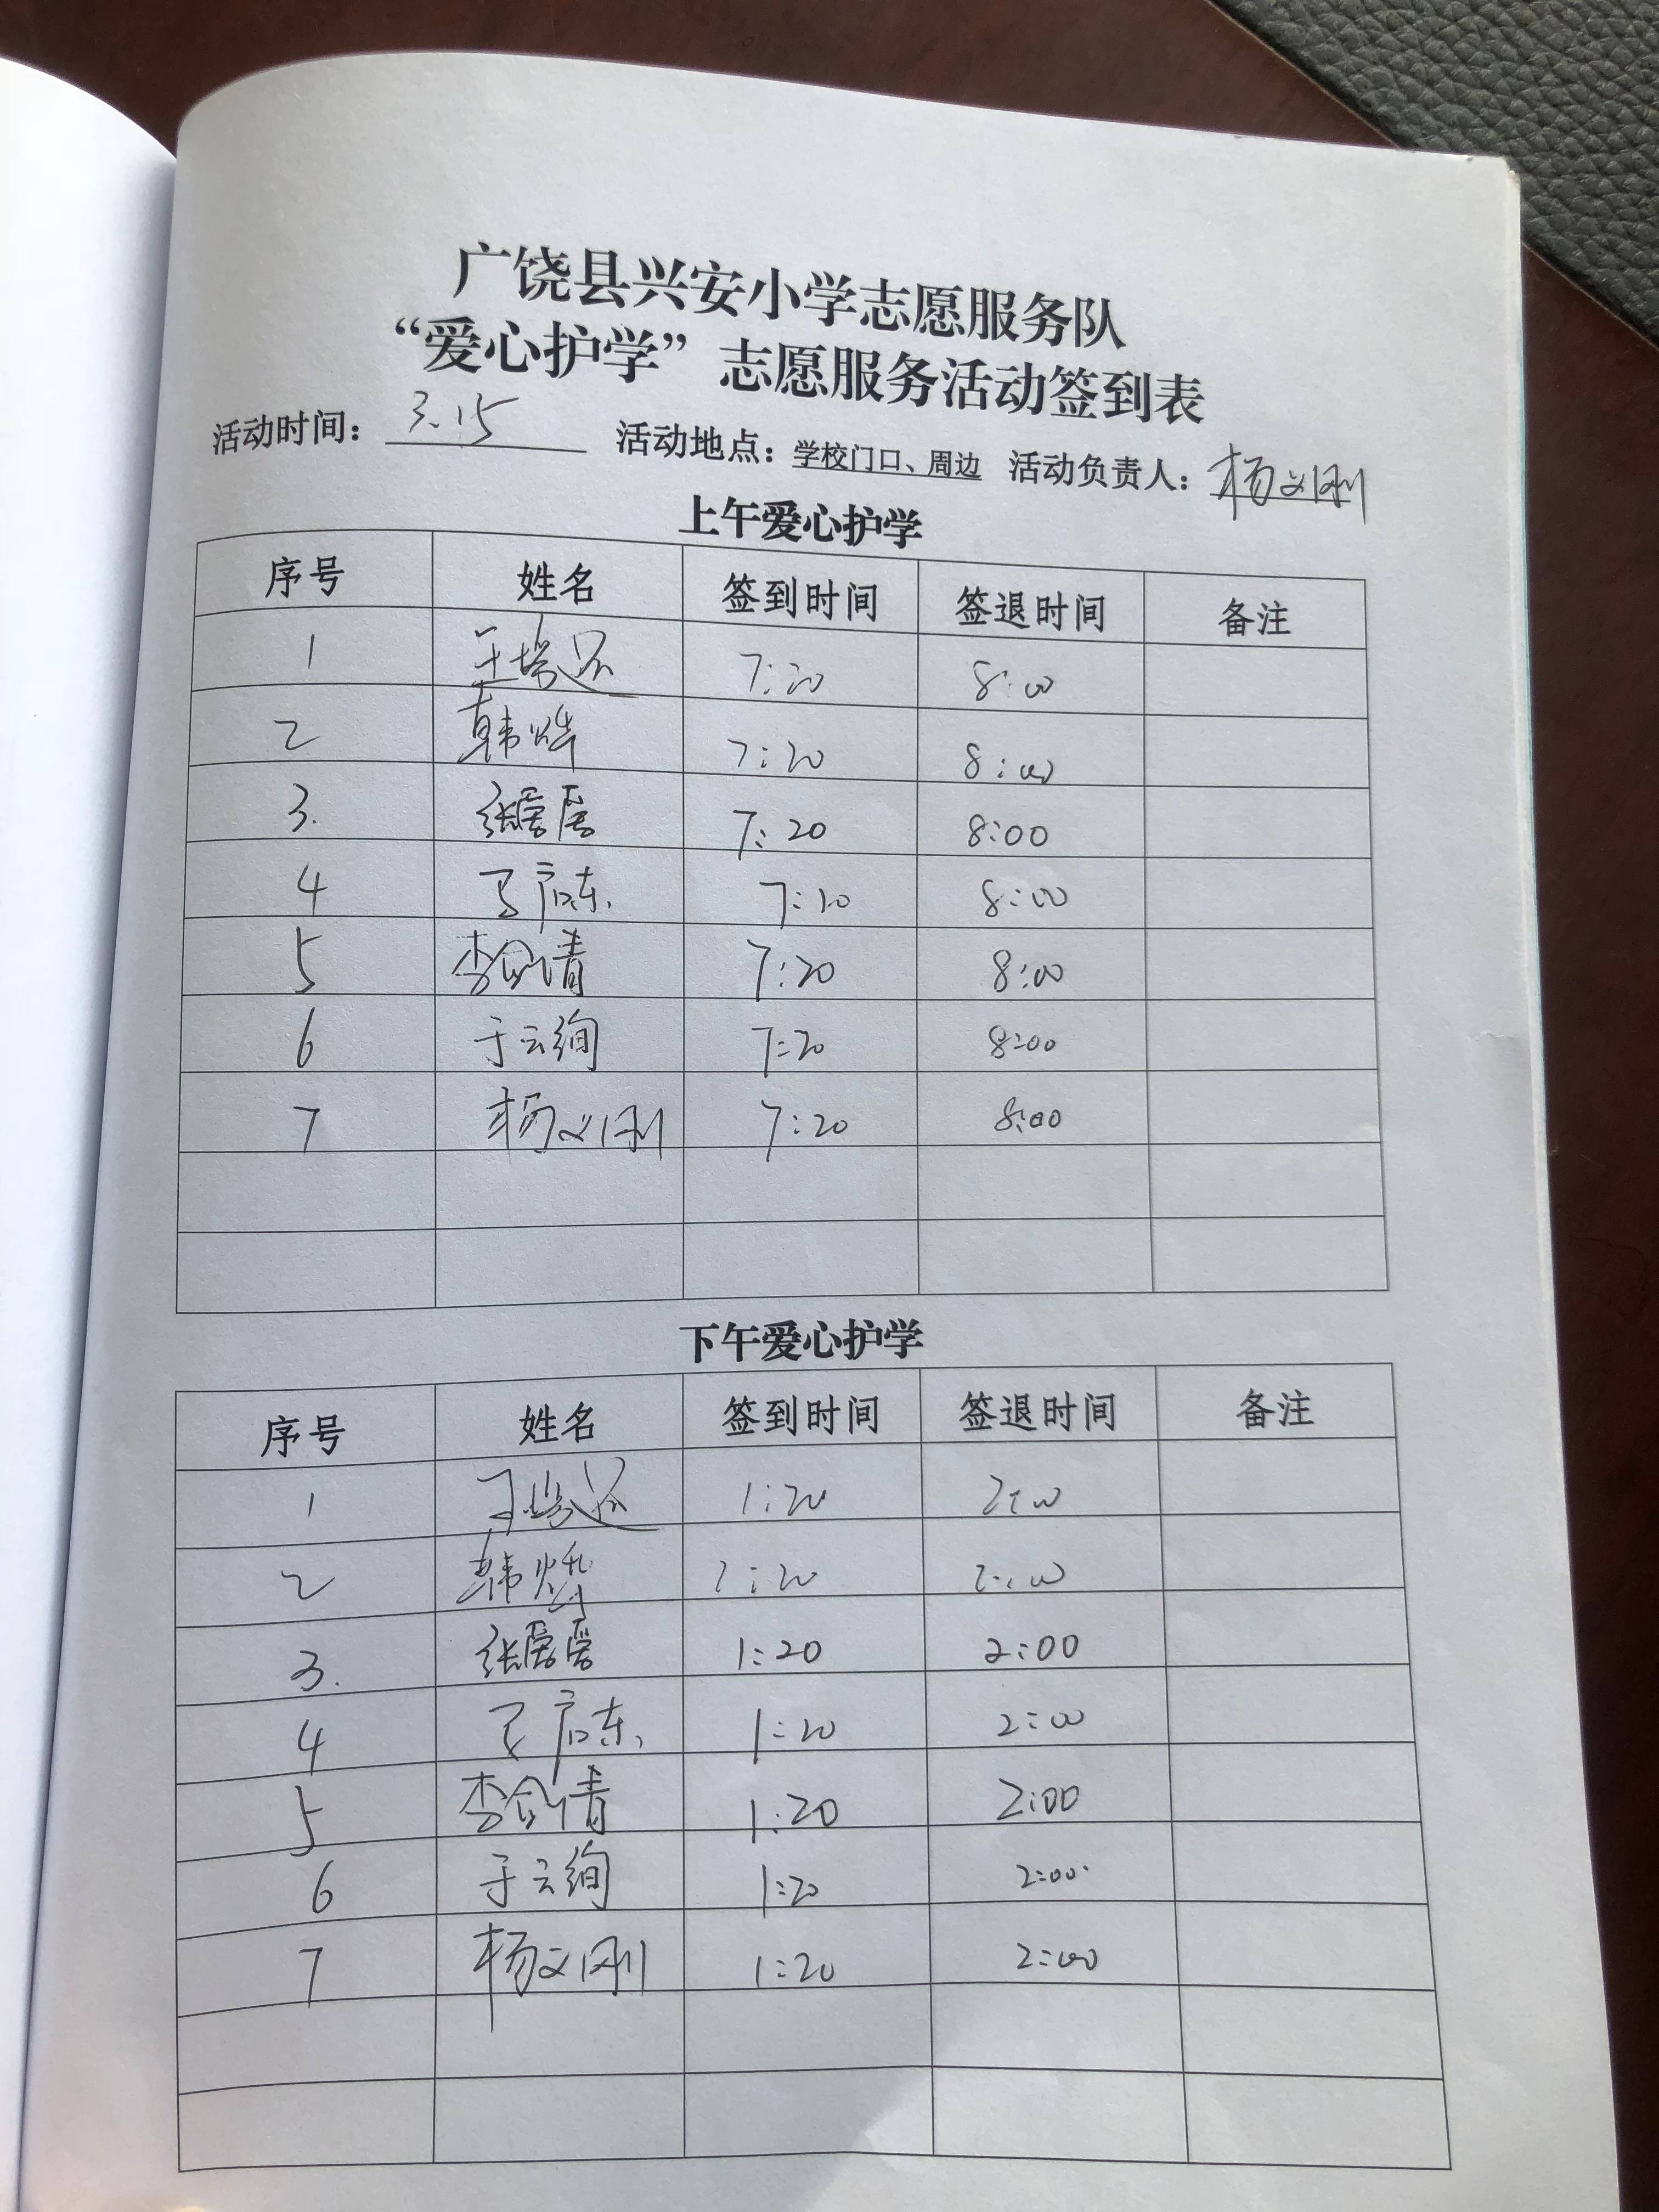 广饶县兴安小学志愿服务队
“爱心护学”志愿服务活动签到表
活动时间：3.15 活动地点：学校门口、周边 活动负责人：杨文刚
上午爱心护学
序号 姓名 签到时间 签退时间 备注
1 7:20 8:00
2 韩烨 7:20 8:00
3. 7:20 8:00
4 7:20 8:00
5 7:20 8:00
6 于云绚 7:20 8:00
7 杨文刚 7:20 8:00
下午爱心护学
序号 姓名 签到时间 签退时间 备注
1 1:20 2:00
2 韩烨 1:20 2:00
3. 1:20 2:00
4 1:20 2:00
5 1:20 2:00
6 于云绚 1:20 2:00
7 杨文刚 1:20 2:00